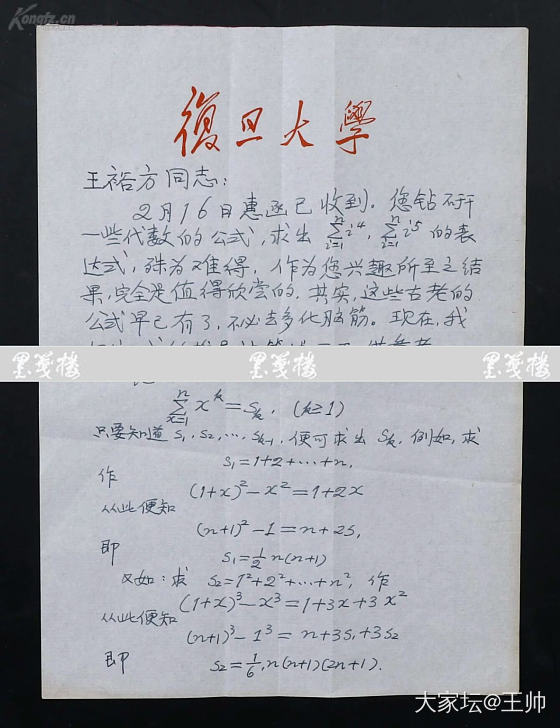 Kongfz.cn
復旦大學
王裕方同志:
2月16日惠函已收到. 您钻研
一些代数的公式, 求出 \sum_{i=1}^{n} i^4, \sum_{i=1}^{n} i^5 的表
达式, 殊为难得, 作为您兴趣所至之结
果, 完全是值得欣尝的. 其实, 这些古老的
公式早已有了, 不必去多化脑筋。现在, 我
墨笺楼 墨笺楼 墨笺楼 墨笺楼
\sum_{x=1}^{n} x^k = S_k, (k≥1)
只要知道 S_1, S_2, …, S_{k-1}, 便可求出 S_k. 例如, 求
S_1=1+2+…+n,
作
(1+x)^2-x^2=1+2x
从此便知
(n+1)^2-1=n+2S_1
即
S_1=\frac{1}{2}n(n+1)
又如: 求 S_2=1^2+2^2+…+n^2, 作
(1+x)^3-x^3=1+3x+3x^2
从此便知
(n+1)^3-1^3=n+3S_1+3S_2
即 S_2=\frac{1}{6}n(n+1)(2n+1).
大家坛@王帅